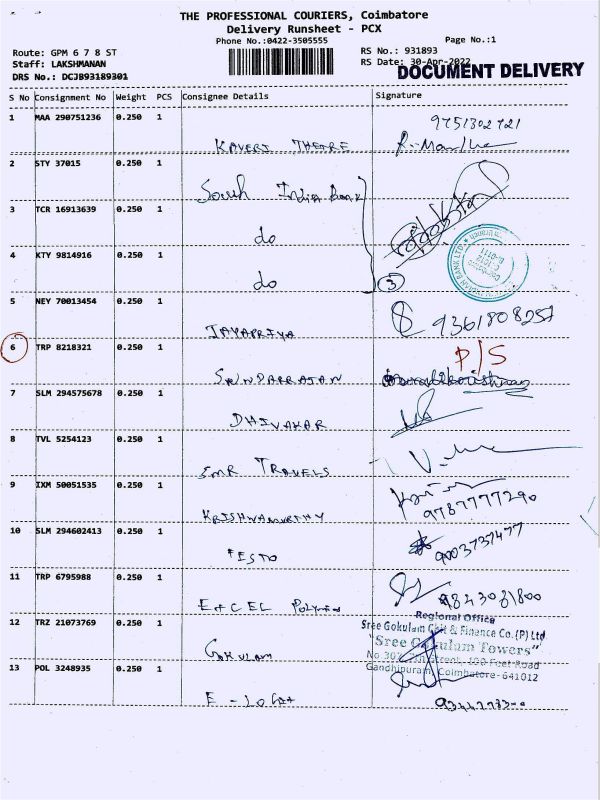 THE PROFESSIONAL COURIERS, Coimbatore
Delivery Runsheet - PCX
Phone No.:0422-3505555
Page No.:1
Route: GPM 6 7 8 ST
RS No.: 931893
Staff: LAKSHMANAN
RS Date: 30-Apr-2022
DOCUMENT DELIVERY
DRS No.: DCJB93189301
S No Consignment No Weight PCS Consignee Details Signature
1 MAA 290751236 0.250 1
9751302721
KAVERI THETRE
2 STY 37015 0.250 1
South India Bank
3 TCR 16913639 0.250 1
do
4 KTY 9814916 0.250 1
do
3
5 NEY 70013454 0.250 1
JAYAPRIYA
9361808257
6 TRP 8218321 0.250 1
P/S
SOUNDARRAJAN
7 SLM 294575678 0.250 1
DHIVAKAR
8 TVL 5254123 0.250 1
SMR TRAVELS
9 IXM 50051535 0.250 1
KRISHNAMURTHY
9787777290
10 SLM 294602413 0.250 1
FESTO
9003737477
11 TRP 6795988 0.250 1
EXCEL
9843081800
Regional Office
12 TRZ 21073769 0.250 1
Sree Gokulam Chit & Finance Co.(P) Ltd
"Sree Gokulam Towers"
GOKULAM
Street, 100 Feet Road
13 POL 3248935 0.250 1
Gandhipuram, Coimbatore-641012